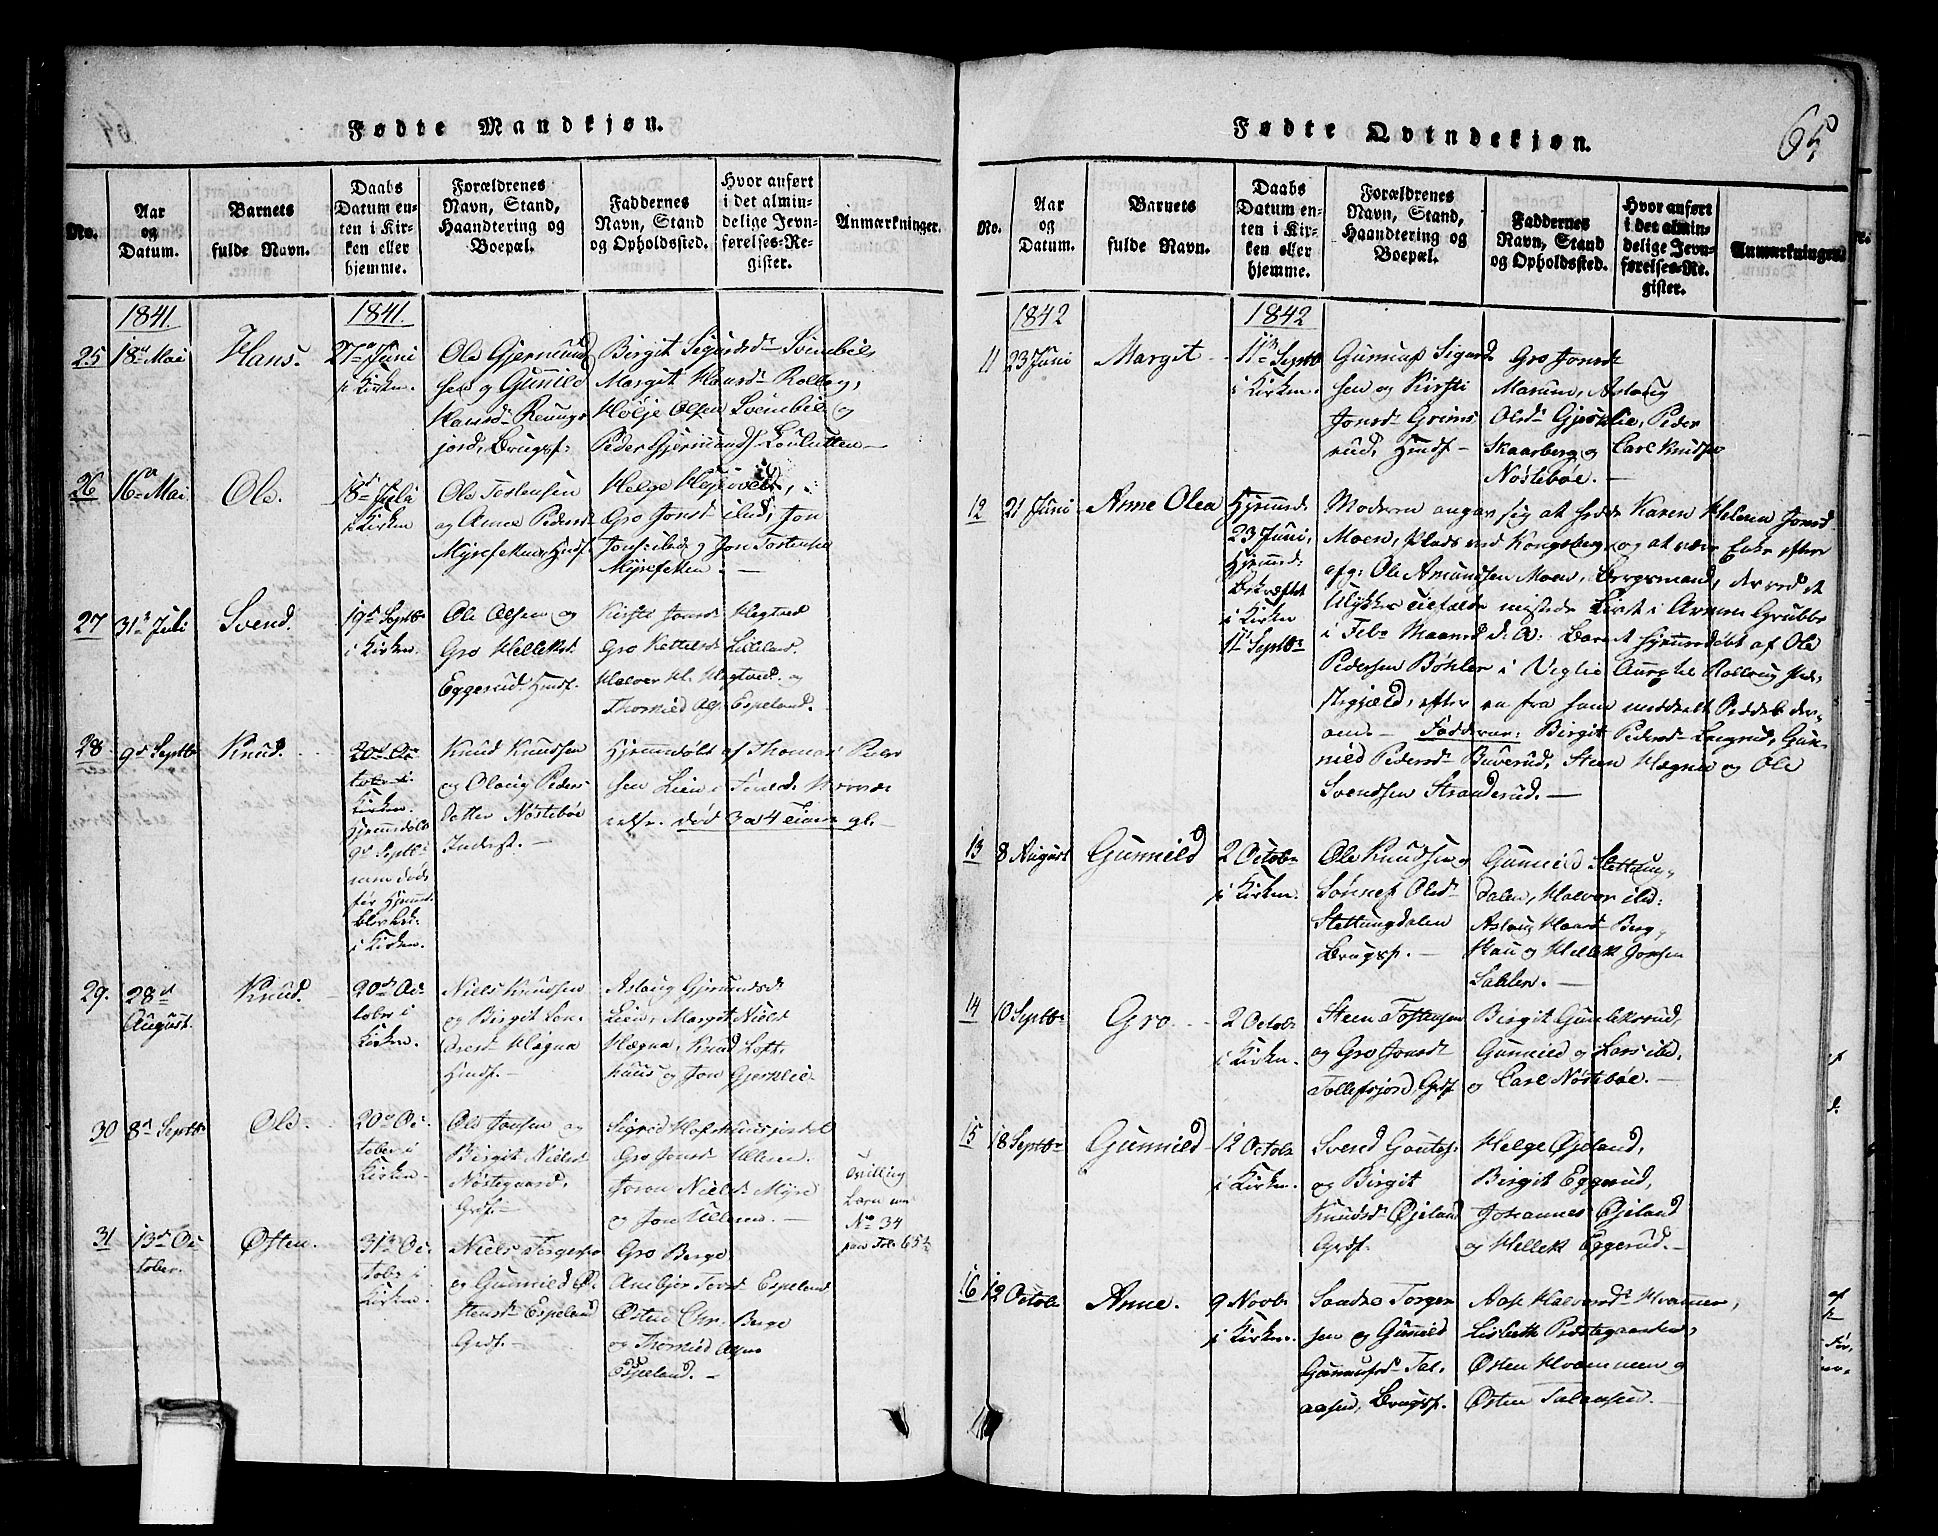 Fødte Mandkjøn.
No.
Aar
og
Datum.
Barnets
fulde Navn.
Daabs
Datum en-
ten i Kir-
ken eller
hjemme.
Forældrenes
Navn, Stand,
Haandtering og
Boepæl.
Faddernes
Navn, Stand
og Opholdssted.
Hvor anført
i det almin-
delige Jevn-
førelses-Re-
gister.
Anmærkninger.
1841.
1841.
25
18de Mai
Hans.
27de Juni
i Kirken.
Ole Gjermund
sen og Gunild
Hansd. Reung-
jord, Brugsf.
Birgit Sigursd.
Margit Hansd. Rollag,
Høljе Olsen
Peder Gjermunds.
26
16de Mai
Ole.
18d Juli
i Kirken
Ole Tostensen
og Anne Pedersd.
Myrefetten, Huusf.
Helge
Gro Jonsd. ibid, Jon
og Jon Tostensen
Myrefetten.
27
31t Juli
Svend.
19d Septbr
i Kirken.
Ole Olsen og
Gro Helleksd.
Eggerud Huusf.
Kirsti Jonsd. Hegtved
Gro Kettelsd. Lilleland.
Halvor H. Hegtved og
Thorsted Ols. Espeland.
28
9d Septbr
Knud.
20d Oc
tober i
Kirken.
Hjemmedøbt
9d Septb.
men døde
før
i Kirken.
Knud Knudsen
og Olaug Peders
datter Nøstebøe
Inderst.
Hjemmedøbt af Thomas Peder
sen Lien i
død 3 a 4 Timer gl.
29.
28d
August.
Knud.
20d Oc
tober i
Kirken.
Niels Knudsen
og Birgit
Hægna
Huusf.
Aslaug Gjermundsd.
Lien, Margit Nielsd.
Hægna, Knud Loft-
huus og Jon Gjerklie.
30
8d Septbr
Ole.
20d Oc
tober i
Kirken.
Ole Jonsen og
Birgit Nielsd.
Nøstegaard,
Grdf.
Sigrid
Gro Jonsd. Ullern.
Joran Nielsd. Myre
og Jon Ullern.
31
13d Oc
tober.
Østen.
31te Oc
tobr i
Kirken.
Niels Torgersen
og Gunild Ø-
stensd. Espeland
Grdf.
Gro Berge
Anebjør Torsd. Espeland
Østen Chr. Berge
og Thorsted
Espeland.
Tvilling
Barn
No 34
Fol. 65 ½
Fødte Qvindekjøn.
65
No.
Aar
og
Datum.
Barnets
fulde Navn.
Daabs
Datum en-
ten i Kir-
ken eller
hjemme.
Forældrenes
Navn, Stand,
Haandtering og
Boepæl.
Faddernes
Navn, Stand
og Opholdssted.
Hvor anført
i det almin-
delige Jevn-
førelses-Re-
gister.
Anmærkninger.
1842
1842
11
23 Juni
Margit
11te Septb
i Kirken.
Gunnuf Sigurd
sen og Kirsti
Jonsd. Grims
rud, Huusf.
Gro Jonsd.
Marum, Aslaug
Olsd. Gjerklie, Peder
Skaarberg og Carl Knudsen
Nøstebøe.
12
21 Juni
Anne Olea
Hjemmed.
23 Juni,
Hjemmed.
Bekræftet
i Kirken
11 Septbr
Moderen angav sig at hedde Karen Helena Jonsd.
Moen, Plads ved Kongsberg, og at være Enke efter
afg: Ole Amundsen Moen, Bergsmand, der ved et
Ulykkestilfælde mistede Livet i Armen Grube
i Febr Maaned d. A: Barnet hjemmedøbt af Ole
Pedersen Bøhler i Veglie Annex til Rollaug Præ-
stegjæld, efter en fra ham meddeelt Seddel der-
om. Faddere: Birgit Pedersd. Bergrud, Gun-
nild Pedersd. Buverud, Steen Hægna og Ole
Svendsen Stranderud.
13
8 August
Gunnild
2 Octobr
i Kirken.
Ole Knudsen og
Sønnef Olsd.
Slettungdalen
Brugsf.
Gunnild Slettung-
dalen, Halvor ibd:
Aslaug Haarsd. Berg,
Hau og Hellek Jonsen
14
10 Septbr
Gro
2 Octobr
i Kirken.
Steen Tostensen
og Gro Jonsd.
Tollefsjord Grdf.
Birgit Gunleksrud,
Gunnild og Lars ibd,
og Carl Nøstebøe.
15
18 Septbr
Gunnild
12 Octobr
i Kirken.
Svend Gouts.
og Birgit
Knudsd. Øjeland
Grdf.
Helge Øjeland,
Birgit Eggerud,
Johannes Øjeland
og Hellek Eggerud.
16
12 Octobr
Anne.
9 Novbr
i Kirken.
Sondre Torger
sen og Gunnild
Gunnufsd. Tal-
aasen, Brugsf.
Aase Halvorsd. Hvammen,
Lisbeth Prestegaarden,
Østen Hvammen og
Østen Talaasen.